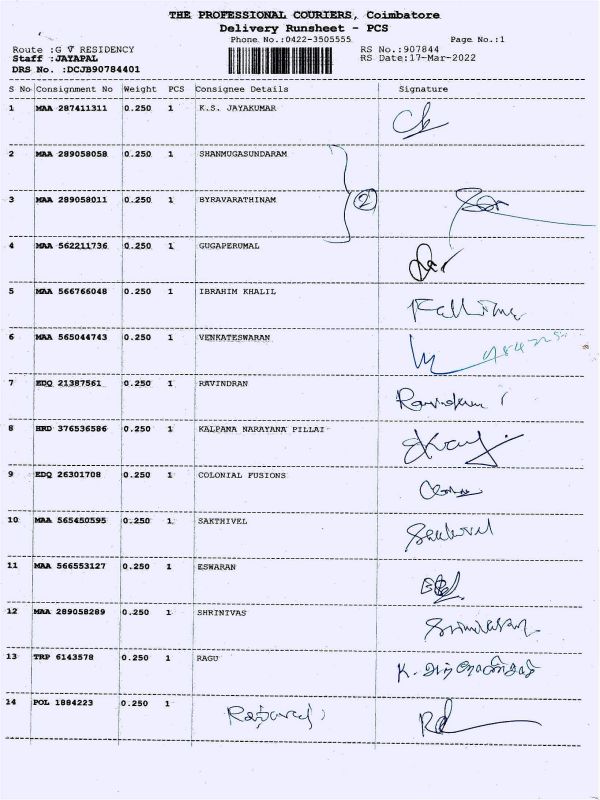 THE PROFESSIONAL COURIERS, Coimbatore
Delivery Runsheet - PCS
Phone No.:0422-3505555 Page No.:1
Route :G V RESIDENCY RS No.:907844
Staff :JAYAPAL RS Date:17-Mar-2022
DRS No. :DCJB90784401
S No Consignment No Weight PCS Consignee Details Signature
1 MAA 287411311 0.250 1 K.S. JAYAKUMAR
2 MAA 289058058 0.250 1 SHANMUGASUNDARAM
3 MAA 289058011 0.250 1 BYRAVARATHINAM 2
4 MAA 562211736 0.250 1 GUGAPERUMAL
5 MAA 566766048 0.250 1 IBRAHIM KHALIL
6 MAA 565044743 0.250 1 VENKATESWARAN
7 EDQ 21387561 0.250 1 RAVINDRAN
8 HRD 376536586 0.250 1 KALPANA NARAYANA PILLAI
9 EDQ 26301708 0.250 1 COLONIAL FUSIONS
10 MAA 565450595 0.250 1 SAKTHIVEL
11 MAA 566553127 0.250 1 ESWARAN
12 MAA 289058289 0.250 1 SHRINIVAS
13 TRP 6143578 0.250 1 RAGU
14 POL 1884223 0.250 1